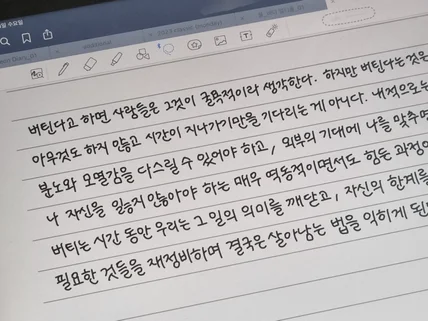 버틴다고 하면 사람들은 그것이 굴욕적이라 생각한다. 하지만 버틴다는것은
아무것도 하지 않고 시간이 지나가기만을 기다리는 게 아니다. 내적으로는
분노와 모멸감을 다스릴 수 있어야 하고, 외부의 기대에 나를 맞추면
나 자신을 잃능지 않아야 하는 매우 역동적이면서도 힘든 과정이
버티는 시간 동안 우리는 그 일의 의미를 깨닫고, 자신의 한계를
필요한 것들을 재정비하며 결국은 살아남는 법을 익히게 된